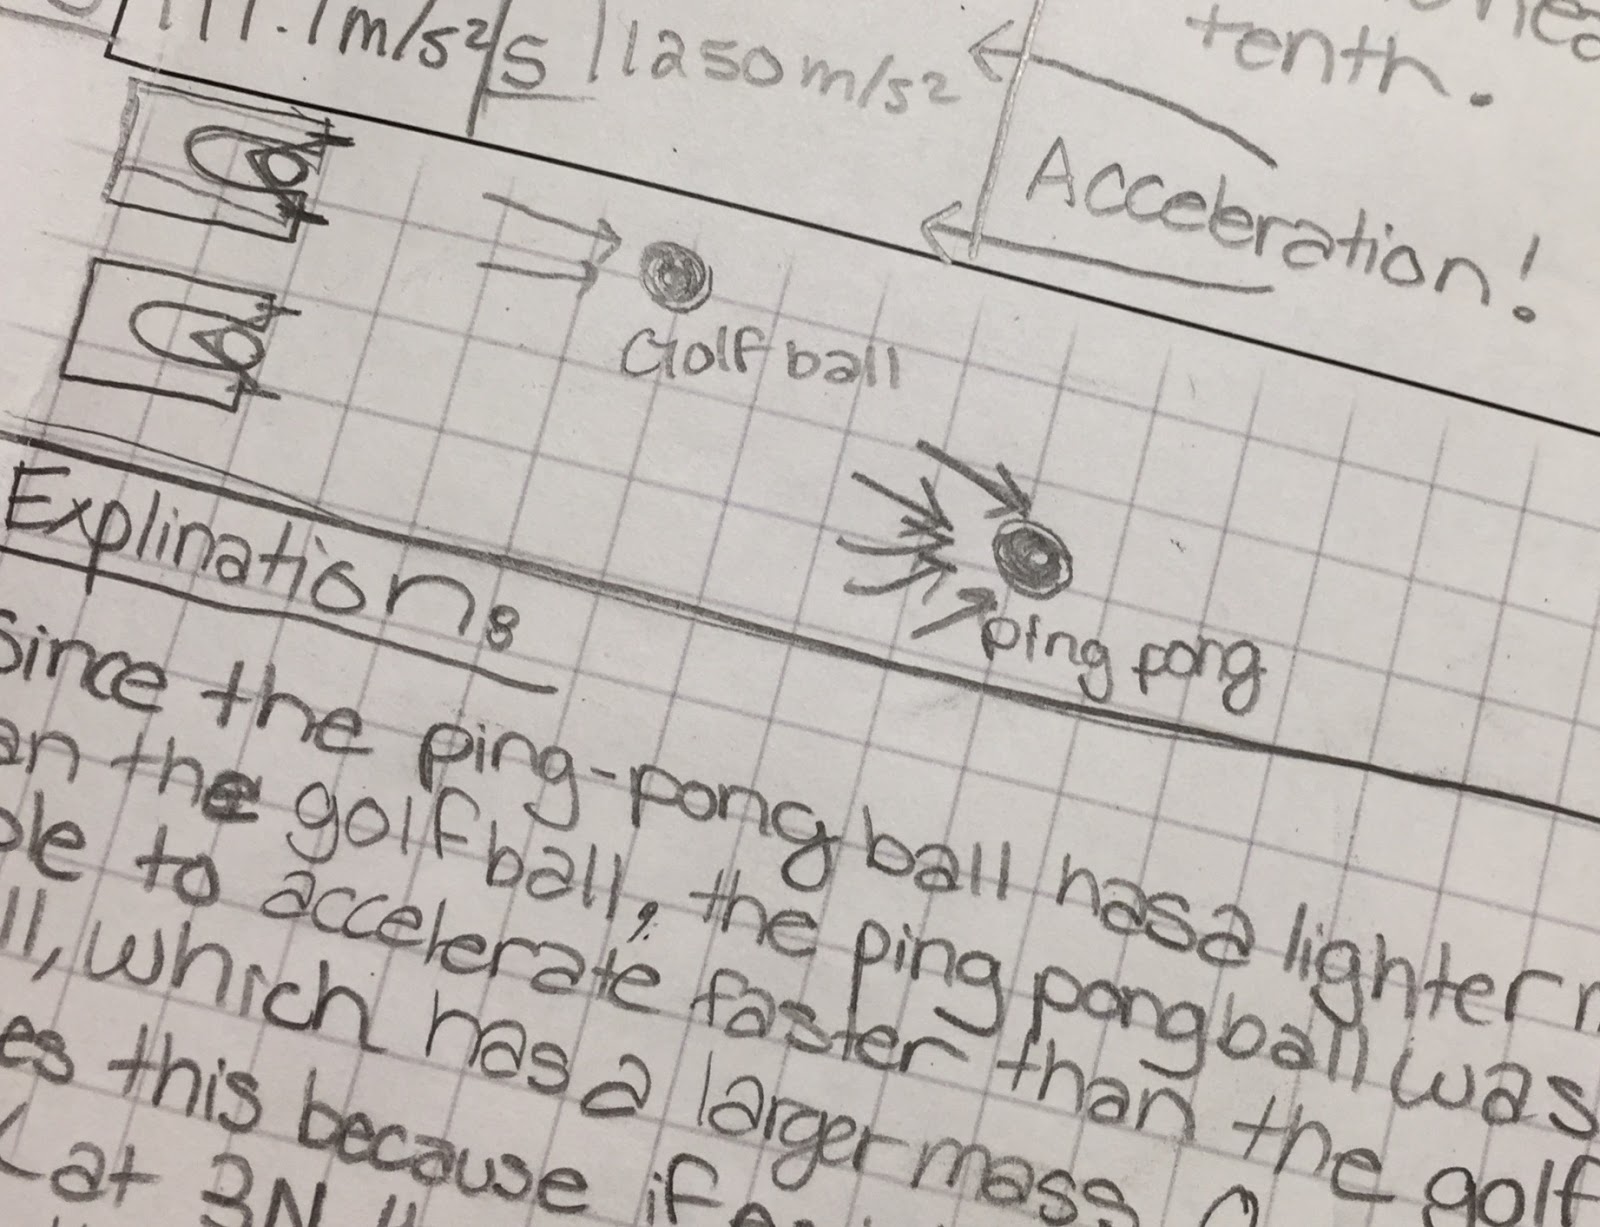 tenth.
111.1m/s²/s | 1250m/s²
Acceleration!
Golf ball
ping pong
Explination:
Since the ping-pong ball has a lighter
the golf ball, the ping pong ball was
to accelerate faster than the golf
which has a larger mass.
this because if
at 3N